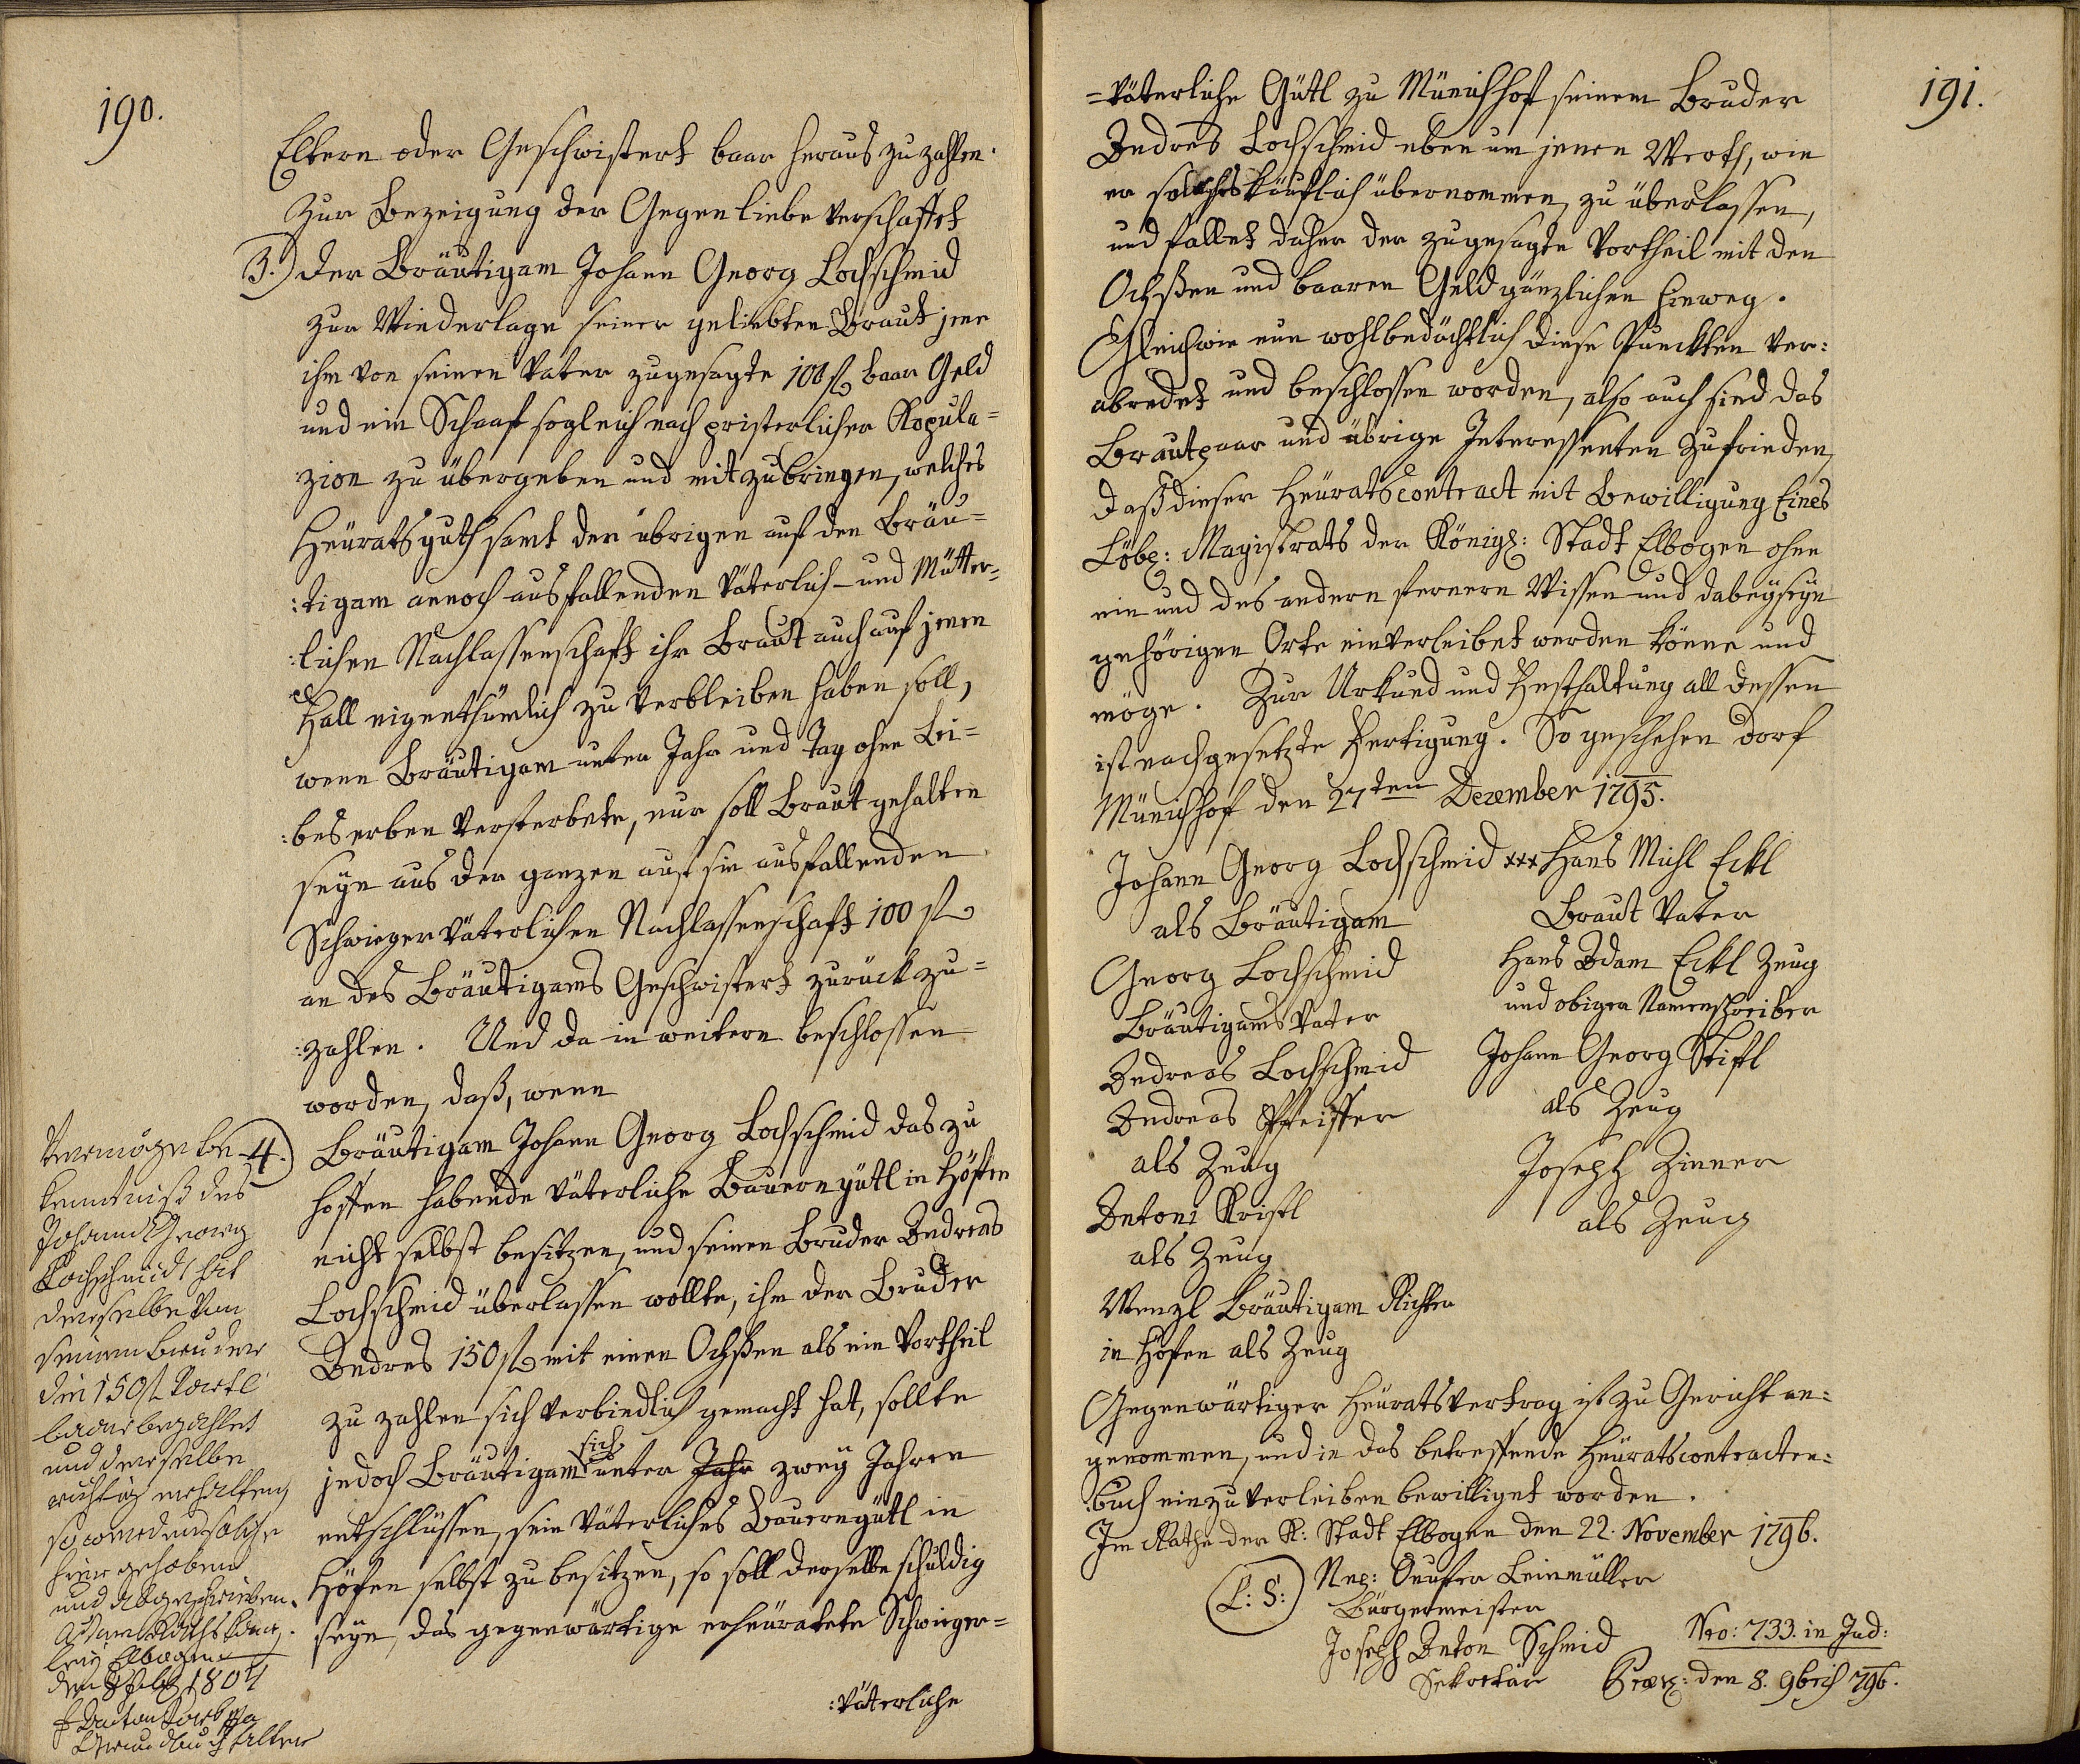 190.
Eltern oder Geschwistert baar heraus zu zahlen.
Zur Bezeigung der Gegenliebe verschaffet
3.) der Bräutigam Johann Georg Lochschmid
zur Wiederlage seiner geliebten Braut jene
ihm von seinen Vater zugesagte 100 fl baar Geld
und ein Schaaf sogleich nach pristerlicher Kopula=
zion zu übergeben und mitzubringen, welches
Heüratsguth samt der übrigen auf den Bräu=
:tigam annoch ausfallenden Väterlich- und Mütter=
:lichen Nachlassenschaft ihr Braut auch auf jenen
Fall eigenthümlich zu verbleiben haben soll,
wenn Bräutigam unter Jahr und Tag ohne Lei=
:bes erben versterbete, nur soll Braut gehalten
seyn aus der ganzen auf sie ausfallenden
Schwiegerväterlichen Nachlassenschaft 100 fl
an des Bräutigams Geschwistert zurück zu=
:zahlen. Und da in weitern beschlossen
worden, daß, wenn
4.) Bräutigam Johann Georg Lochschmid das zu
hoffen habende väterliche Bauerngütl in Höfen
nicht selbst besitzen, und seinen Bruder Andreas
Lochschmid überlassen wollte, ihm der Bruder
Andres 150 fl mit einen Ochßen als ein Vortheil
zu zahlen sich verbindlich gemacht hat, sollte
jedoch Bräutigam sich unter Jahr zweÿ Jahren
entschlüssen, sein väterliches Bauerngütl in
Höfen selbst zu besitzen, so soll derselbe schuldig
seyn, das gegenwärtige erheüratete Schwieger=
:väterliche
Vermög Be-
kenntniß des
Johann Georg
Lochschmid hat
derselbe von
seinem Bruder
die 150 fl
baar bezahlet
und derselbe
richtig erhalten,
so werden solche
hier gehoben
und abgeschrieben.
Elbogen
den 1804
Anton
Grundbuchhalter
191.
=väterliche Gütl zu Münichhof seinem Bruder
Andres Lochschmid eben um jenen Werth, wie
er solches käuflich übernommen, zu überlassen,
und fallet daher der zugesagte Vortheil mit den
Ochßen und baaren Geld gänzlichen hinweg.
Gleichwie nun wohlbedächtlich diese Punckten ver:
abredet und beschlossen worden, also auch sind das
Brautpaar und übrige Interessenten zufrieden,
daß dieser Heüratscontract mit Bewilligung Eines
Löbl: Magistrats der Königl: Stadt Elbogen ohne
ein und des andern fernern Wissen und dabeyseyn
gehörigen Orts einverleibet werden könne und
möge. Zur Urkund und Festhaltung all dessen
ist nachgesetzte Fertigung. So geschehen Dorf
Münichhof den 27ten Dezember 1795.
Johann Georg Lochschmid xxx Hans Michl Eckl
als Bräutigam Braut Vater
Georg Lochschmid Hans Adam Eckl Zeug
Bräutigams Vater und obigen Namenschreiber
Andreas Lochschmid Johann Georg Stiftl
Andreas Pfeiffer als Zeug
als Zeug Joseph Zinner
Antoni Kristl als Zeug
als Zeug
Wenzl Bräutigam Richter
in Höfen als Zeug
Gegenwärtiger Heüratsvertrag ist zu Gericht an:
genommen, und in das betreffende Heüratscontracten:
:buch einzuverleiben bewilliget worden.
Im Rathe der K: Stadt Elbogen den 22. November 1796.
(L: S:) Leinmüller
Bürgermeister
Joseph Anton Schmid Nro: 733. in Jud:
Sekretär den 8. 9brih 796.